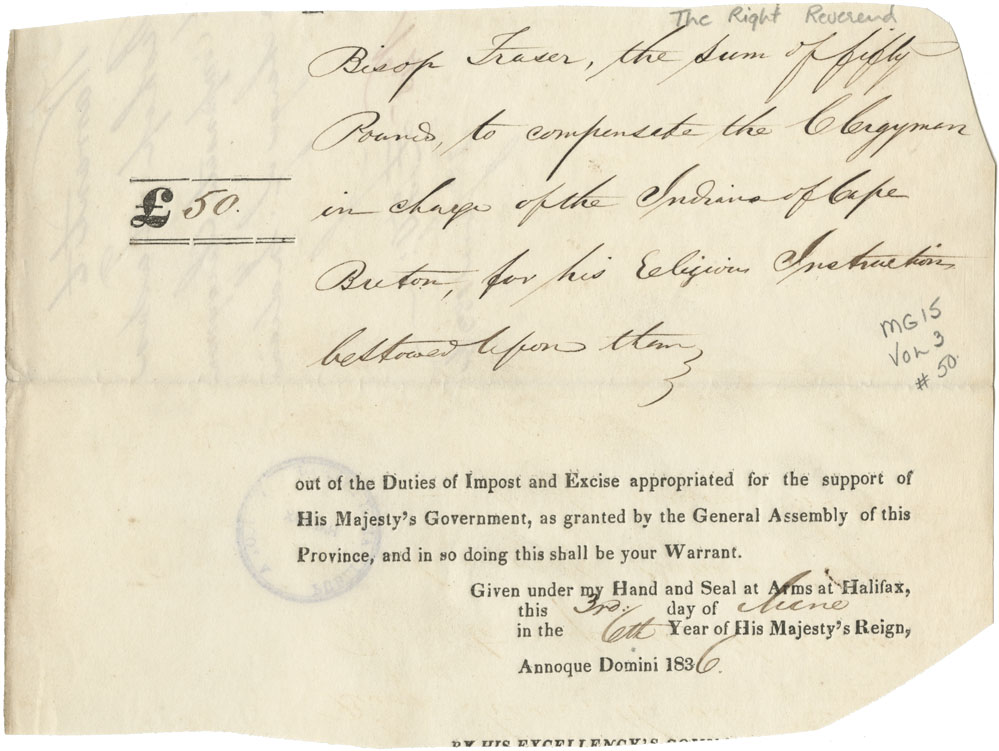 The Right Reverend
Bisop Fraser, the sum of fifty
Pounds, to compensate the Clergyman
£ 50.
in charge of the Indians of Cape
Breton, for his Religious Instruction
bestowed Upon them
MG15
Vol 3
# 50
out of the Duties of Impost and Excise appropriated for the support of
His Majesty's Government, as granted by the General Assembly of this
Province, and in so doing this shall be your Warrant.
Given under my Hand and Seal at Arms at Halifax,
this 3rd. day of June
in the 6th Year of His Majesty's Reign,
Annoque Domini 1836.
BY HIS EXCELLENCY'S